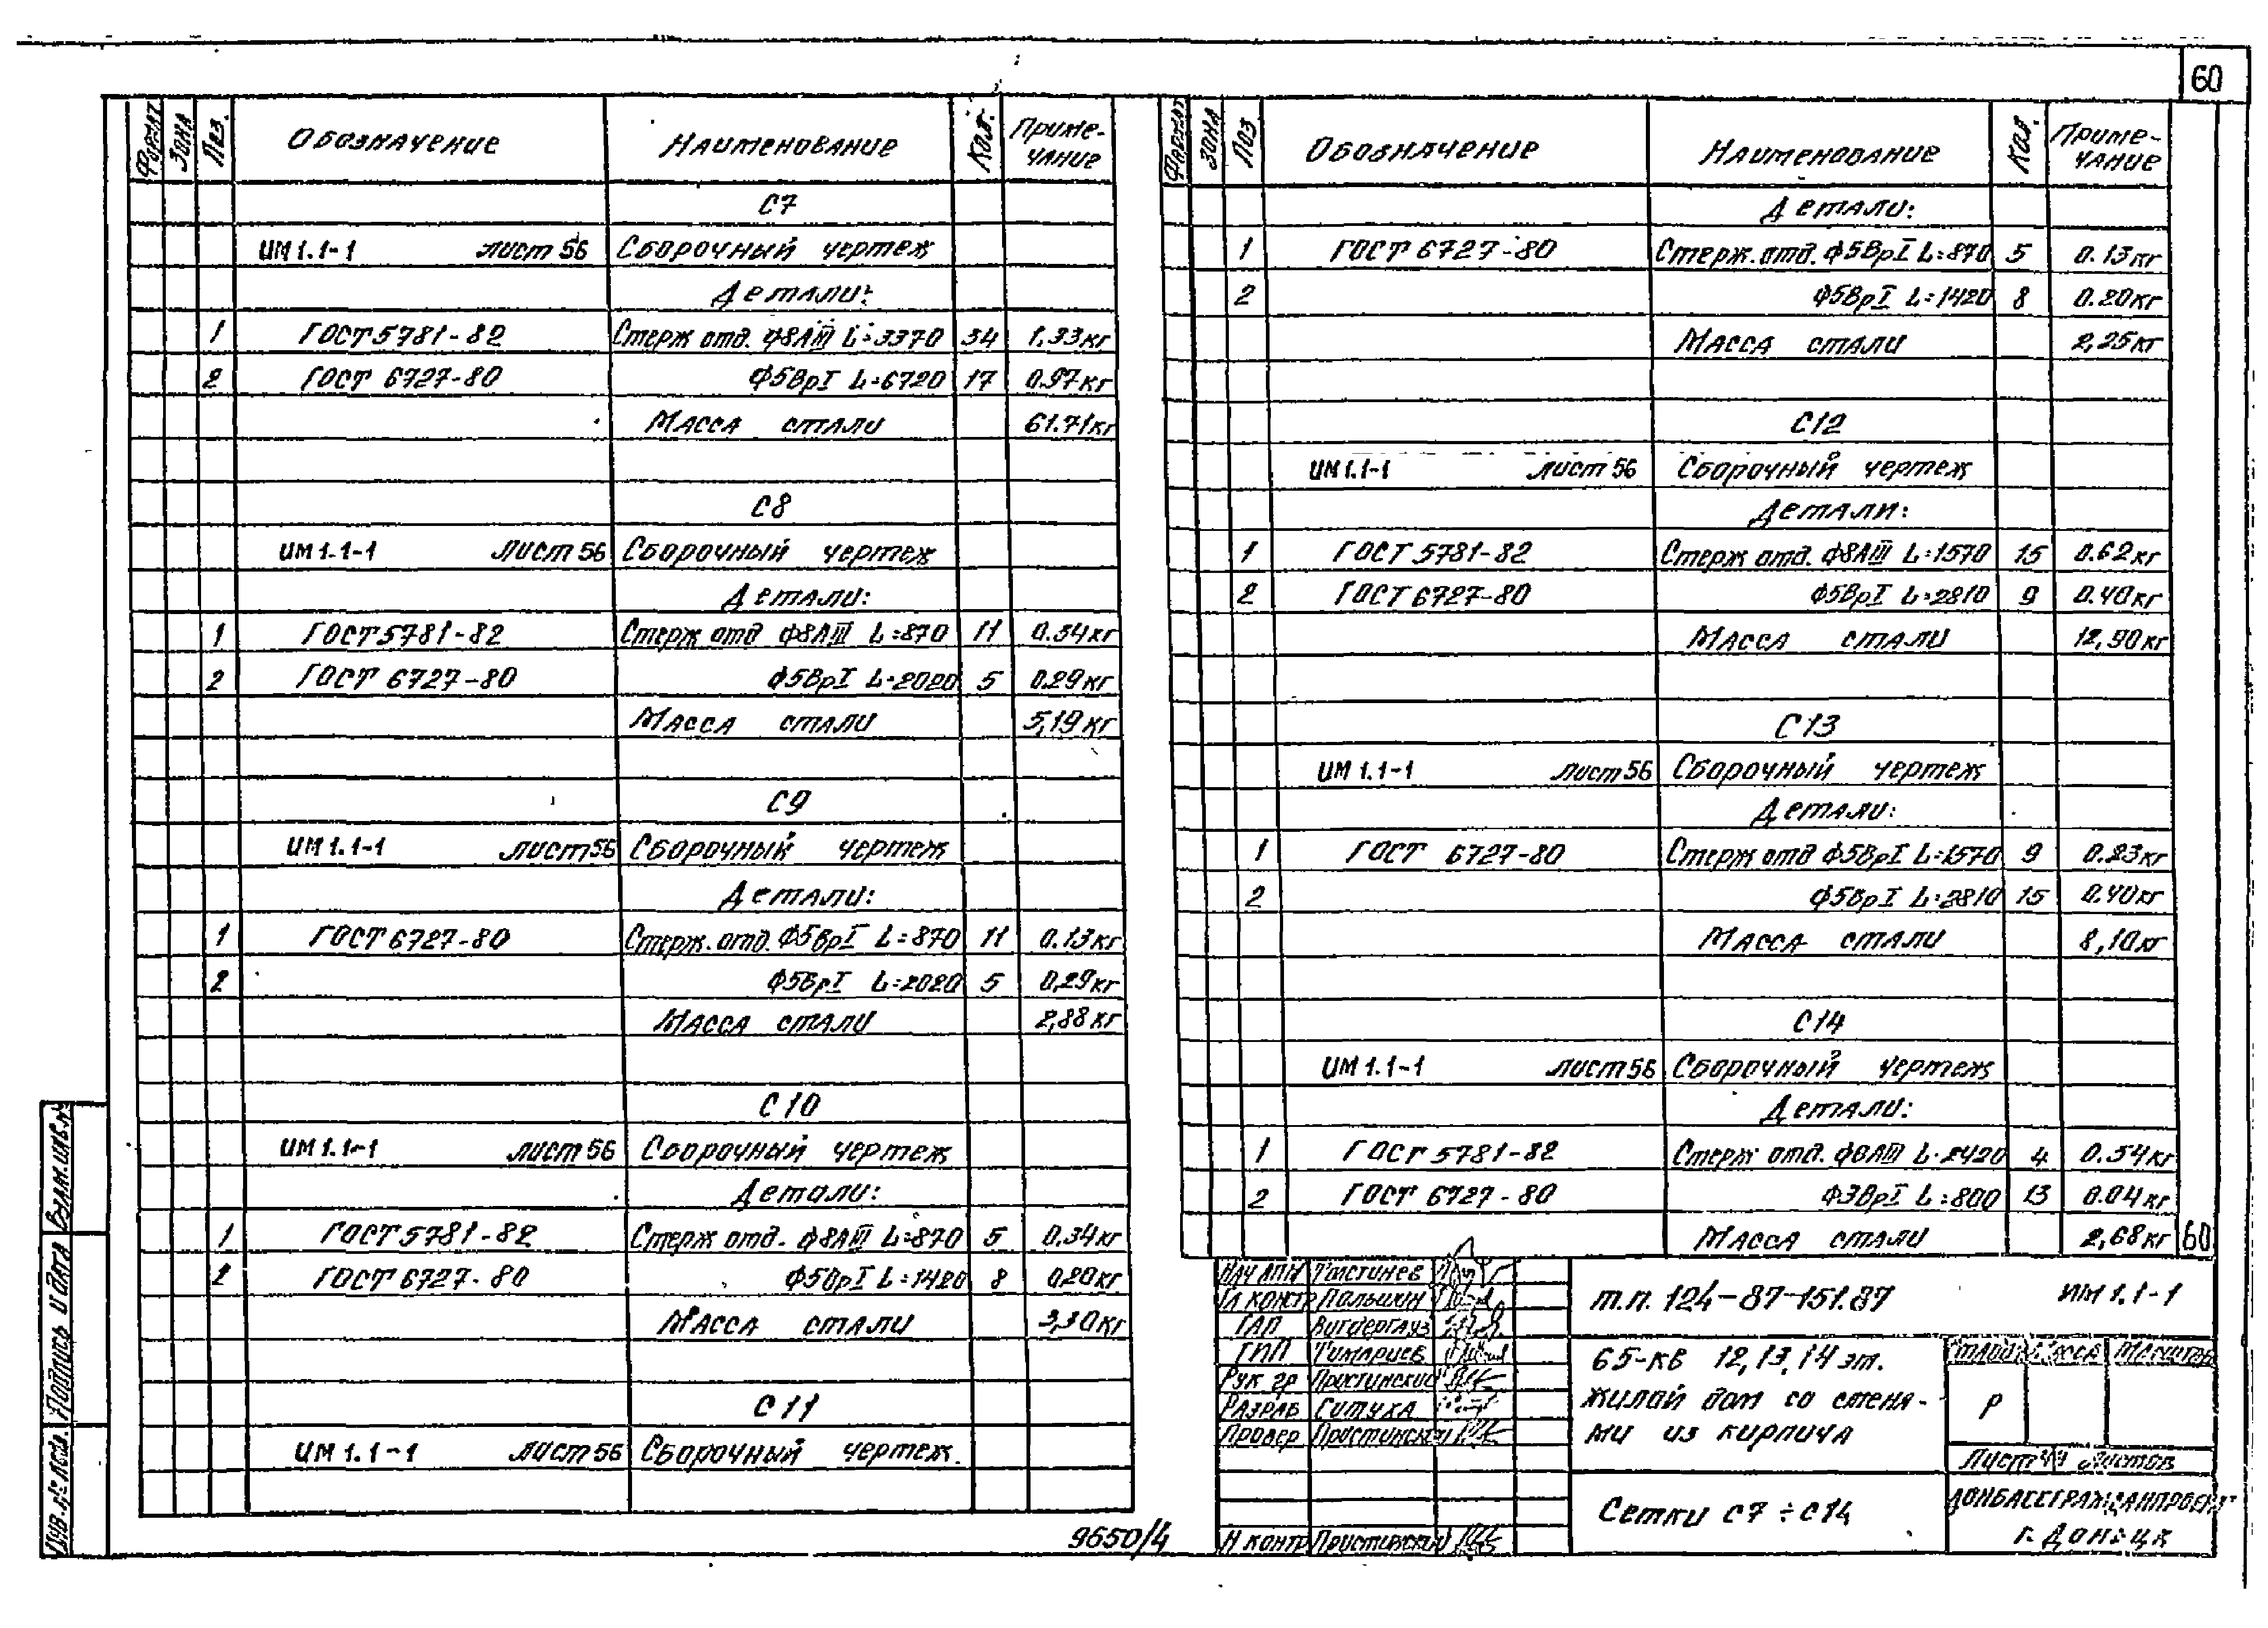 60
Формат Зона Поз. Обозначение Наименование Кол. Примечание
С7
ИМ 1.1-1 лист 56 Сборочный чертеж
Детали:
1 ГОСТ 5781-82 Стерж отд. ф8АIII L=3370 34 1,33кг
2 ГОСТ 6727-80 ф5ВрI L=6720 17 0.97кг
Масса стали 61.71кг
С8
ИМ 1.1-1 лист 56 Сборочный чертеж
Детали:
1 ГОСТ 5781-82 Стерж отд ф8АIII L=870 11 0.34кг
2 ГОСТ 6727-80 ф5ВрI L=2020 5 0.29кг
Масса стали 5,19кг
С9
ИМ 1.1-1 лист 56 Сборочный чертеж
Детали:
1 ГОСТ 6727-80 Стерж. отд. ф5ВрI L=870 11 0.13кг
2 ф5ВрI L=2020 5 0,29кг
Масса стали 2,88кг
С10
ИМ 1.1-1 лист 56 Сборочный чертеж
Детали:
1 ГОСТ 5781-82 Стерж отд. ф8АIII L=870 5 0,34кг
2 ГОСТ 6727-80 ф5ВрI L=1420 8 0.20кг
Масса стали 3,30кг
С11
ИМ 1.1-1 лист 56 Сборочный чертеж.
Формат Зона Поз Обозначение Наименование Кол. Примечание
Детали:
1 ГОСТ 6727-80 Стерж. отд. ф5ВрI L=870 5 0.13кг
2 ф5ВрI L=1420 8 0.20кг
Масса стали 2,25кг
С12
ИМ 1.1-1 лист 56 Сборочный чертеж
Детали:
1 ГОСТ 5781-82 Стерж отд. ф8АIII L=1570 15 0.62кг
2 ГОСТ 6727-80 ф5ВрI L=2810 9 0.40кг
Масса стали 12,90кг
С13
ИМ 1.1-1 лист 56 Сборочный чертеж
Детали:
1 ГОСТ 6727-80 Стерж отд ф5ВрI L=1570 9 0.23кг
2 ф5ВрI L=2810 15 0.40кг
Масса стали 8,10кг
С14
ИМ 1.1-1 лист 56 Сборочный чертеж
Детали:
1 ГОСТ 5781-82 Стерж отд. L=2420 4 0.54кг
2 ГОСТ 6727-80 ф3ВрI L=800 13 0.04кг
Масса стали 2,68кг 60
Нач АПМ
Гл констр Пальшин
ГАП Вигдергауз
ГИП Тимариев
Рук гр Пристинский
Разраб Ситуха
Провер Пристинский
Н контр Пристинский
т.п. 124-87-151.87 ИМ 1.1-1
65-кв 12,13,14 эт.
жилой дом со стена-
ми из кирпича
Стадия Масса Масштаб
Р
Лист Листов
Сетки С7÷С14
ДОНБАССГРАЖДАНПРОЕКТ
г. Донецк
Взам.инв.№
Подпись и дата
Инв.№ подл.
9650/4